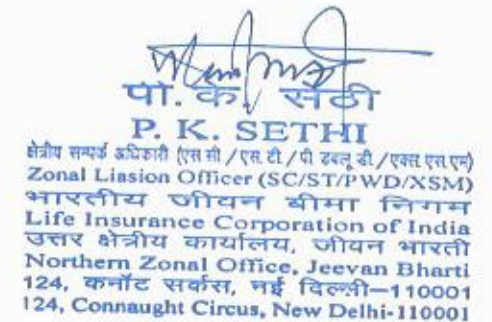 पी. के. सेठी
P. K. SETHI
क्षेत्रीय सम्पर्क अधिकारी (एस सी / एस. टी / पी डबलू डी / एक्स एस एम)
Zonal Liasion Officer (SC/ST/PWD/XSM)
भारतीय जीवन बीमा निगम
Life Insurance Corporation of India
उत्तर क्षेत्रीय कार्यालय, जीवन भारती
Northern Zonal Office, Jeevan Bharti
124, कनॉट सर्कस, नई दिल्ली-110001
124, Connaught Circus, New Delhi-110001